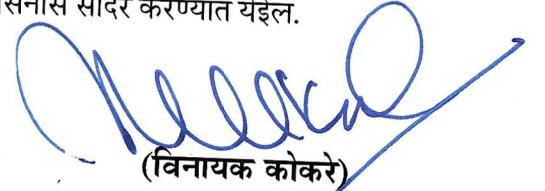 सादर करण्यात येईल.
(विनायक कोकरे)